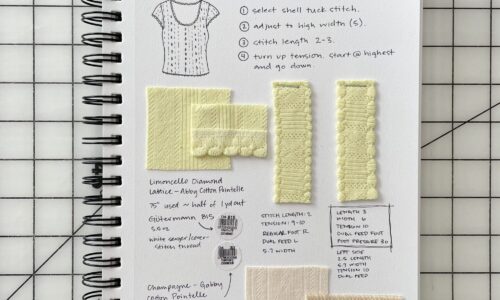 ① select shell tuck stitch.
② adjust to high width (5).
③ stitch length 2-3.
④ turn up tension. start @ highest
and go down.
Limoncello Diamond
Lattice – Abby Cotton Pointelle
75" used ~ half of 1 yd cut
Gütermann 815
white serger/cover
stitch thread
STITCH LENGTH: 2
TENSION: 9-10
REGULAR FOOT R
DUAL FEED L
5.7 WIDTH
LENGTH 3
WIDTH 6
TENSION 10
DUAL FEED FOOT
FOOT PRESSURE 80
LEFT SIDE
2.5 LENGTH
5.7 WIDTH
TENSION 10
DUAL FEED
Champagne – Gabby
Cotton Pointelle